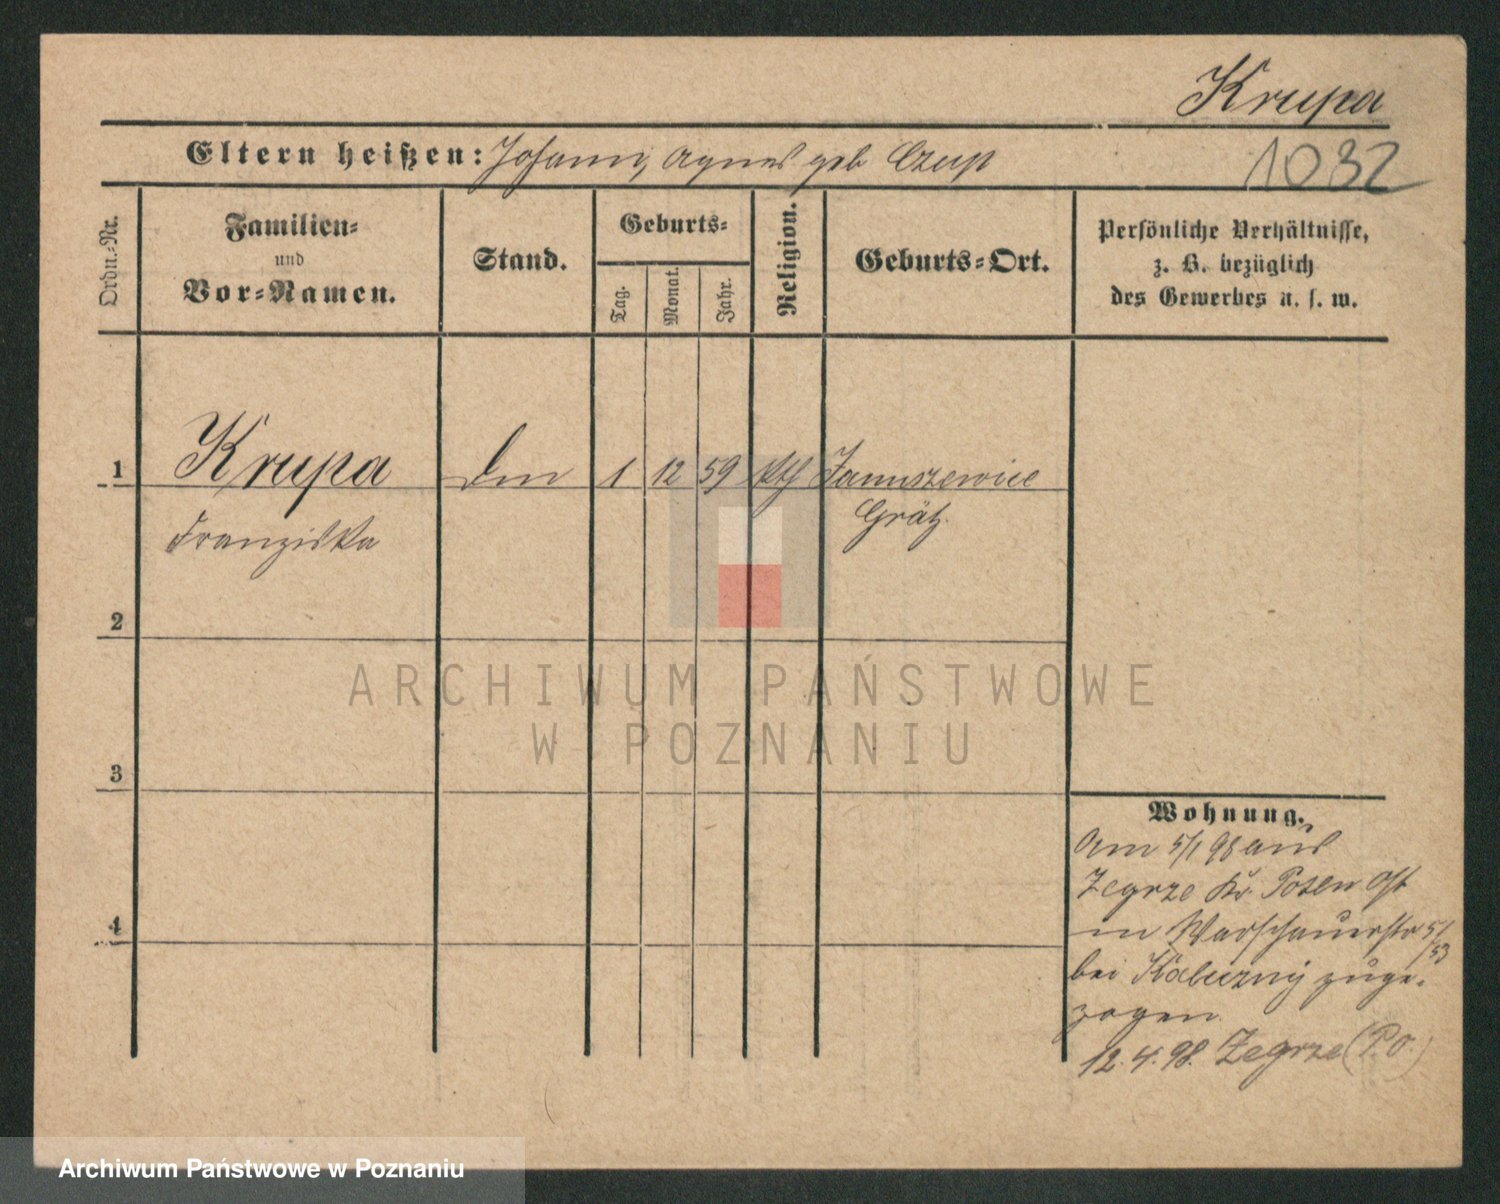 Krupa
1032
Eltern heißen: Johann, Agnes geb Czup
Ordn.-Nr.
Familien-
und
Vor-Namen.
Stand.
Geburts-
Tag.
Monat.
Jahr.
Religion.
Geburts-Ort.
Persönliche Verhältnisse,
z. B. bezüglich
des Gewerbes u. s. w.
1 Krupa 1 12 59 kth Januszewice
Franziska Grätz
2
3
4
Wohnung.
Am 5/1 98 aus
Zegrze Kr. Posen Ost
in Warschauerstr 51/53
bei Kaluzny zuge-
zogen
12.4.98. Zegrze (P.O.)
ARCHIWUM PAŃSTWOWE
W POZNANIU
Archiwum Państwowe w Poznaniu